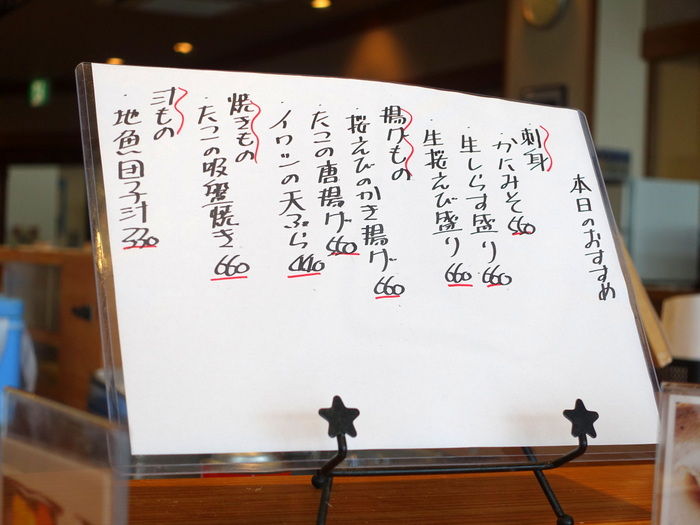 本日のおすすめ
刺身
・かにみそ 660
・生しらす盛り 660
・生桜えび盛り 660
揚げもの
・桜えびのかき揚げ 660
・たこの唐揚げ 660
・イワシの天ぷら 440
焼きもの
・たこの吸盤焼き 660
汁もの
・地魚団子汁 330